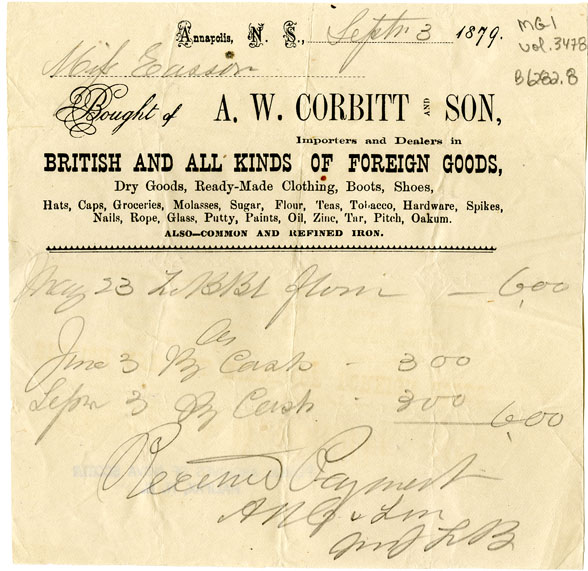 Annapolis, N. S., Septr 3 1879.
MG1
vol. 3478
B6282.8
Miss Easson
Bought of A. W. CORBITT AND SON,
Importers and Dealers in
BRITISH AND ALL KINDS OF FOREIGN GOODS,
Dry Goods, Ready-Made Clothing, Boots, Shoes,
Hats, Caps, Groceries, Molasses, Sugar, Flour, Teas, Tobacco, Hardware, Spikes,
Nails, Rope, Glass, Putty, Paints, Oil, Zinc, Tar, Pitch, Oakum.
ALSO—COMMON AND REFINED IRON.
May 23 BBl flour — 6.00
June 3 By Cash - 3 00
Septr 3 By Cash - 3 00 6.00
Received Payment